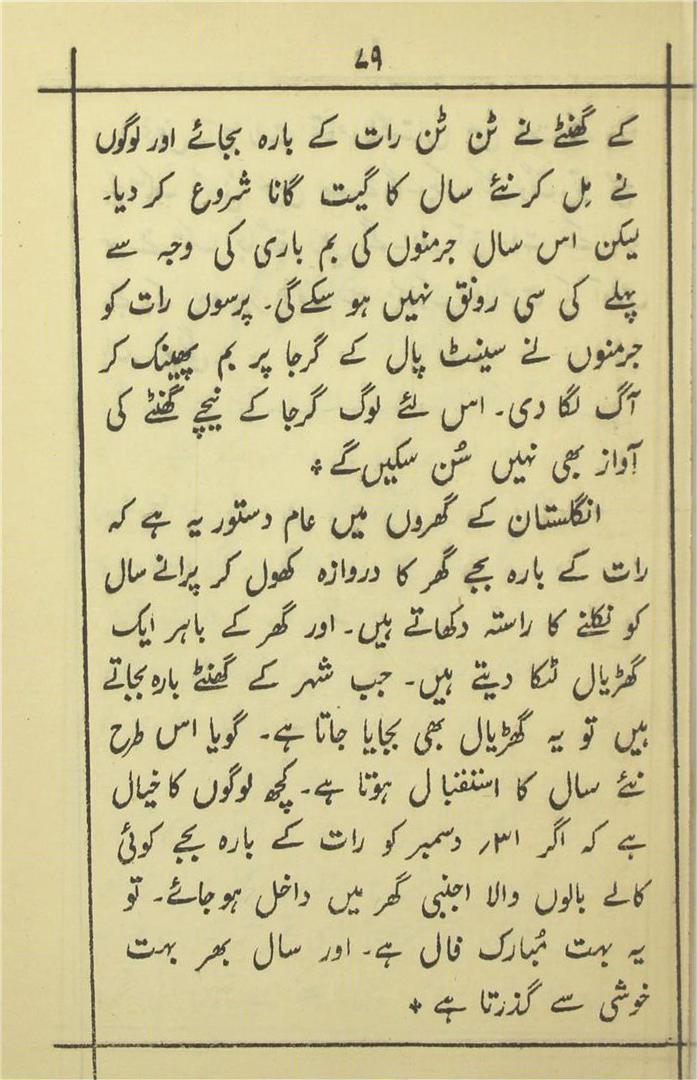 ۷۹
کے گھنٹے نے ٹن ٹن رات کے بارہ بجائے اور لوگوں
نے مِل کر نئے سال کا گیت گانا شروع کر دیا۔
لیکن اس سال جرمنوں کی بم باری کی وجہ سے
پہلے کی سی رونق نہیں ہو سکے گی۔ پرسوں رات کو
جرمنوں نے سینٹ پال کے گرجا پر بم پھینک کر
آگ لگا دی۔ اس لئے لوگ گرجا کے نیچے گھنٹے کی
آواز بھی نہیں سُن سکیں گے *
انگلستان کے گھروں میں عام دستور یہ ہے کہ
رات کے بارہ بجے گھر کا دروازہ کھول کر پرانے سال
کو نکلنے کا راستہ دکھاتے ہیں۔ اور گھر کے باہر ایک
گھڑیال ٹکا دیتے ہیں۔ جب شہر کے گھنٹے بارہ بجاتے
ہیں تو یہ گھڑیال بھی بجایا جاتا ہے۔ گویا اس طرح
نئے سال کا استقبال ہوتا ہے۔ کچھ لوگوں کا خیال
ہے کہ اگر ۳۱؍ دسمبر کو رات کے بارہ بجے کوئی
کالے بالوں والا اجنبی گھر میں داخل ہو جائے۔ تو
یہ بہت مُبارک فال ہے۔ اور سال بھر بہت
خوشی سے گذرتا ہے *